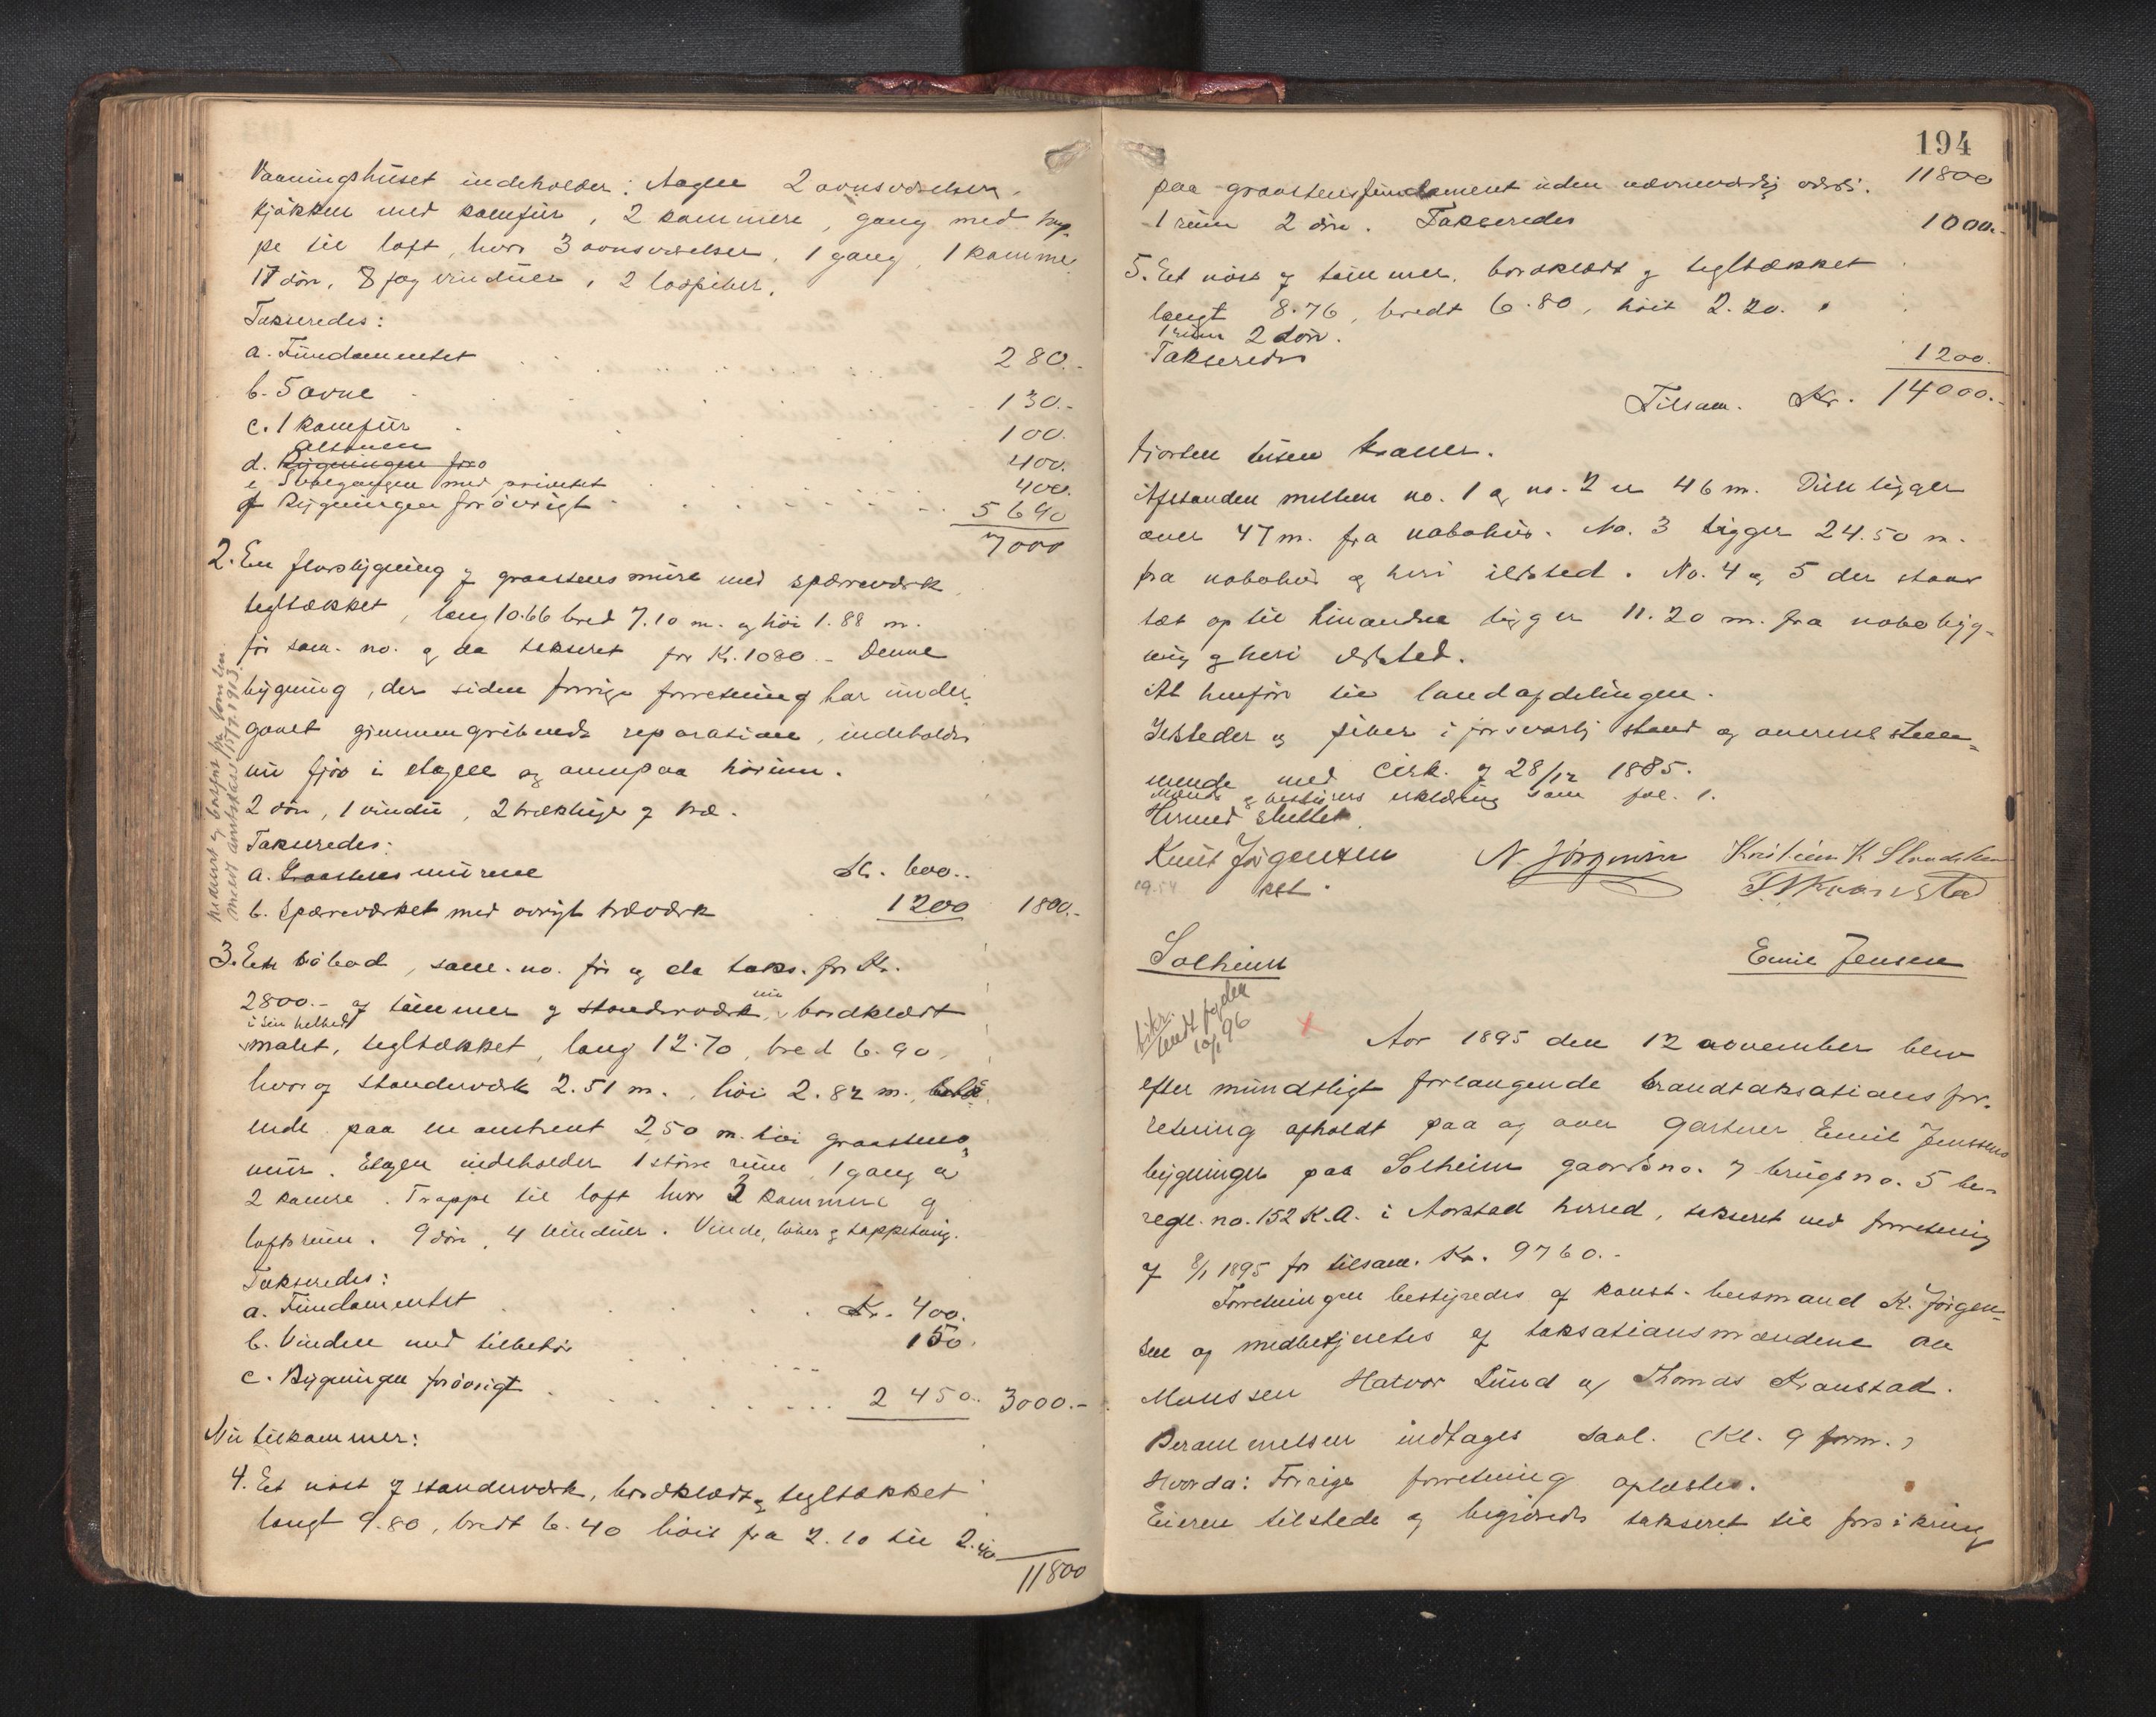 Vaaningshuset indeholder: Etagen 2 ovnsværelser,
kjøkken med komfur, 2 kammere, gang med trap-
pe til loft, hvor 3 ovnsværelser, 1 gang, 1 kammer
17 dør, 8 fag vinduer, 2 løbpiber.
Takseredes:
a. Fundamentet 280.-
b. 5 ovne 130.-
c. 1 komfur 100.
altanen
d. Bygningen fro 400.
e. Svalegangen med privetet 400.
f Bygningen forøvrigt 5690
7000
2. En florbygning af graastensmure med spærreværk
tegltækket, lang 10.66 bred 7.10 m. og høi 1.88 m.
før sam. no. og da takseret for Kr. 1080.- Denne
bygning, der siden forrige forretning har under-
gaaet gjennemgribende reparation, indeholder
nu fjøs i etagen og ovenpaa hørum.
2 dør, 1 vindu, 2 træklüger af træ.
Takseredes:
a. Graastens murene Kr. 600..
b. Spærreværket med øvrigt træværk 1200 1800.-
3. En søbod, sam. no. før og da taks. for Kr.
2800.- af tømmer og stenderværk, nu bordklædt
i sin helhed
malet, tegltækket, lang 12.70, bred 6.90,
hvoraf stenderværk 2.51 m., høi 2.82 m.,
ende paa en omtrent 2,50 m. høi graastens-
mur. Etagen indeholder 1 større rum, 1 gang og
2 kamre. Trappe til loft hvor 3 kammere og
loftsrum. 9 dør, 4 vinduer. Vinde, løber og tappetaug.
Takseredes:
a. Fundamentet Kr. 400.
b. Vinden med tilbehør 150.
c. Bygningen forøvrigt 2450.. 3000.-
Nu tilkommer:
4. Et nøst af stenderværk, bordklædt og tegltækket
langt 9.80, bredt 6.40 høit fra 2.10 til 2.40
11800
194
paa graastensfundament uden nævneværdig værdi. 11800
1 rum 2 dør. Takseredes 1000.-
5. Et nøst af tømmer, bordklædt og tegltækket
langt 8.76, bredt 6.80, høit 2.20.
1 rum 2 dør.
Takseredes 1200.
Tilsam. Kr. 14000.-
fjorten tusen kroner.
Afstanden mellem no. 1 og no. 2 er 46 m. Disse ligger
over 47 m. fra nabohus. No. 3 ligger 24.50 m.
fra nabohus og heri ildsted. No. 4 og 5 der staar
tæt op til hinanden ligger 11.20 m. fra nabobyg-
ning og heri ildsted.
At henføre til landafdelingen.
Ildsteder og piber i forsvarlig stand og overensstem-
mende med Cirk. af 28/12 1885.
Mænds og bestyrers erklæring som fol. 1.
Hermed sluttet.
Knut Jørgensen N. Jörgensen Kristian K Slaadstun
kst. T. Kraastad
Solheim Emil Jensen
10/1 96
Aar 1895 den 12 november blev
efter mundtligt forlangende brandtaksationsfor-
retning afholdt paa og over gartner Emil Jenssens
bygninger paa Solheim gaardsno. 7 brugsno. 5 be-
regl. no. 152 K.A. i Aarstad herred, takseret ved forretning
af 8/1 1895 for tilsam. Kr. 9760.-
Forretningen bestyredes af konst. lensmand K. Jørgen-
sen og medbetjentes af taksationsmændene Ole
Monssen Halvor Lund og Thomas Kraastad.
Berammelsen indtages saal. (Kl. 9 form.)
Hvorda: Forrige forretning oplæstes.
Eieren tilstede og begjærede takseret til forsikring